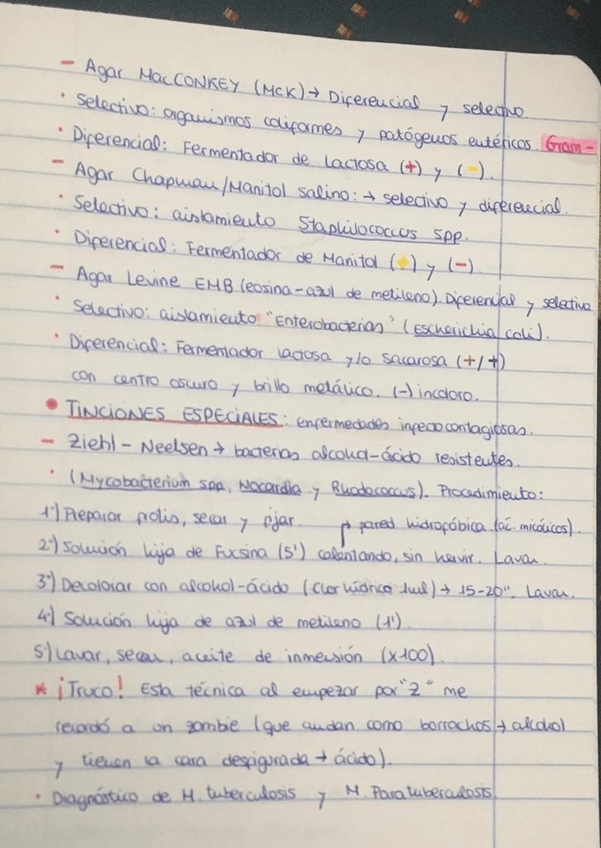 - Agar MacCONKEY (MCK) → Diferencial y selectivo.
· Selectivo: organismos coliformes y patógenos entéricos. Gram -
· Diferencial: Fermentador de Lactosa (+) y (-).
- Agar Chapman/Manitol salino: → selectivo y diferencial.
· Selectivo: aislamiento Staphilococcus spp.
· Diferencial: Fermentador de Manitol (+) y (-)
- Agar Levine EMB (eosina-azul de metileno). Diferencial y selectivo
· Selectivo: aislamiento "Enterobacterias" (Escherichia coli).
· Diferencial: Fermentador lactosa y/o sacarosa (+/+)
con centro oscuro y brillo metálico. (-) incoloro.
• TINCIONES ESPECIALES: enfermedades infectocontagiosas.
- Ziehl-Neelsen → bacterias alcohol-ácido resistentes.
· (Mycobacterium spp, Nocardia y Rhodococcus). Procedimiento:
1º) Preparar frotis, secar y fijar. pared hidrofóbica (ác. micólicos).
2º) Solución hija de Fucsina (5') calentando, sin hervir. Lavar.
3º) Decolorar con alcohol-ácido (Clorhídrico 1ml) → 15-20". Lavar.
4º) Solución hija de azul de metileno (1').
5) Lavar, secar, aceite de inmersión (x100).
* ¡Truco! Esta técnica al empezar por "Z" me
recordó a un zombie (que andan como borrachos → alcohol
y tienen la cara desfigurada → ácido).
· Diagnóstico de M. tuberculosis y M. Paratuberculosis